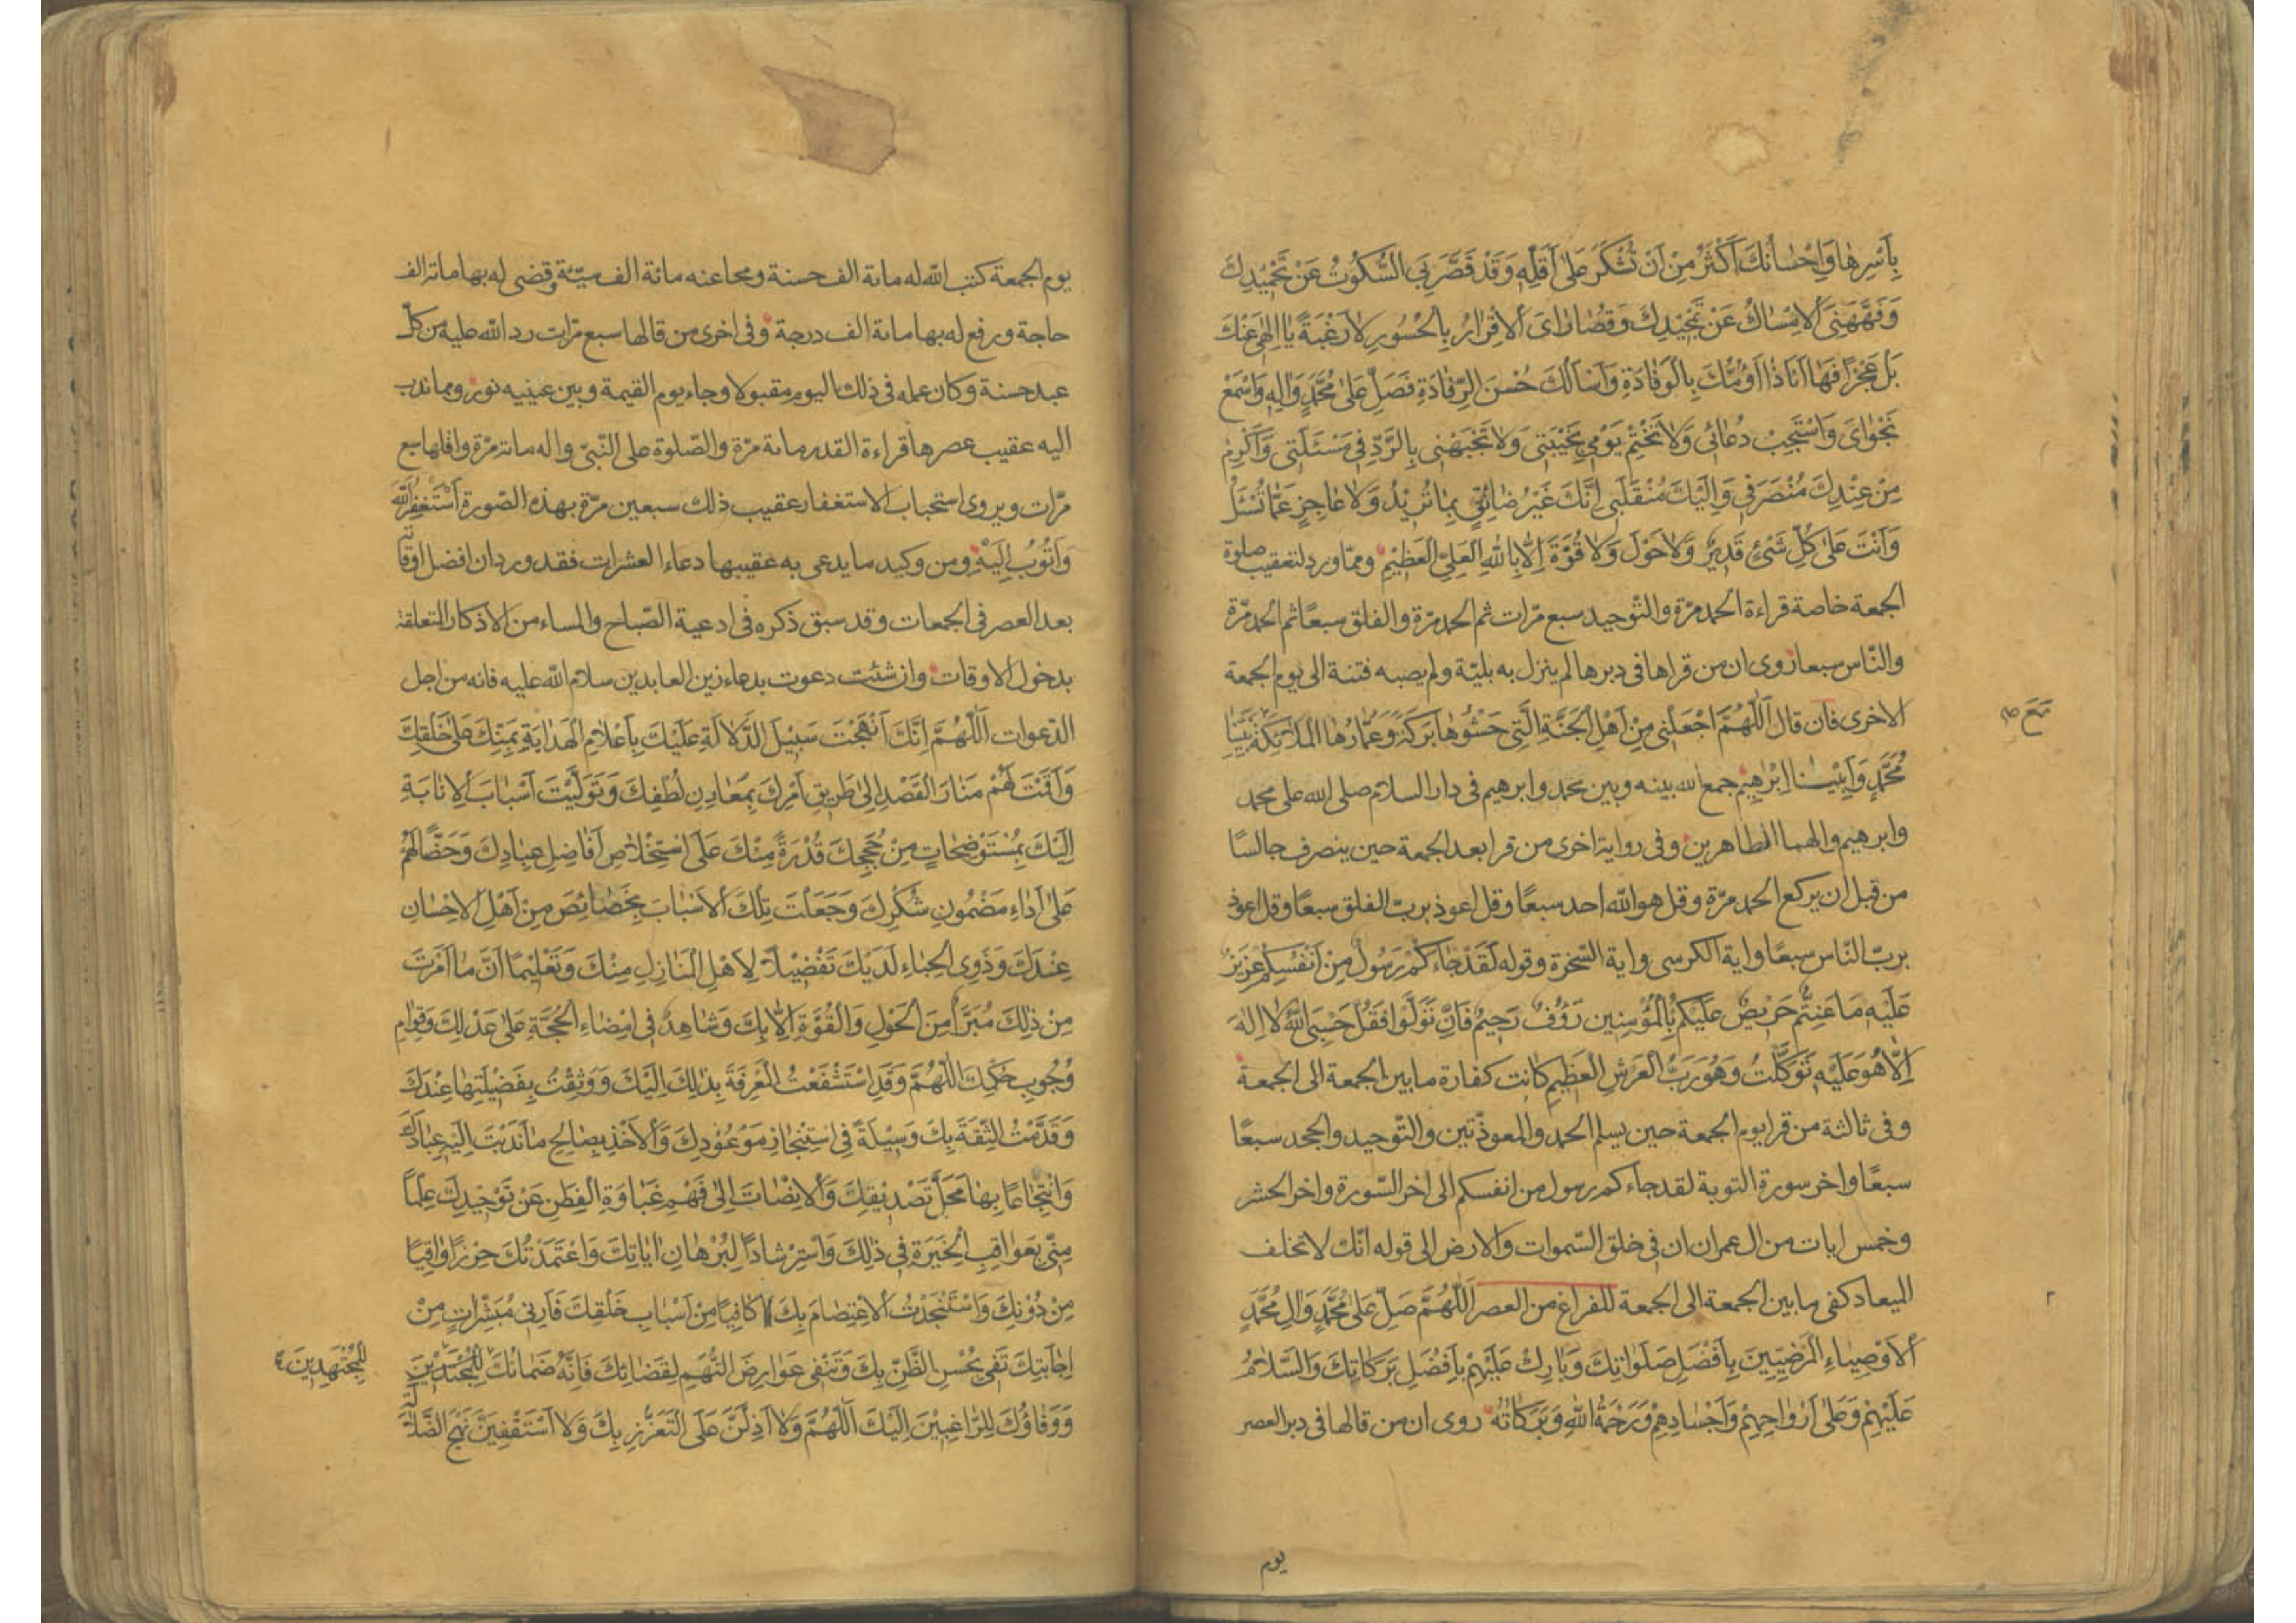 بِاَسْرِهَا وَاِحْسَانُكَ اَكْثَرُ مِنْ اَنْ تُشْكَرَ عَلٰى اَقَلِّهِ وَقَدْ قَصَّرَ بِيَ السُّكُوْتُ عَنْ تَحْمِيْدِكَ
وَفَهَّهَنِىَ الْاِمْسَاكُ عَنْ تَمْجِيْدِكَ وَقُصَارَاىَ الْاِقْرَارُ بِالْحُسُورِ لَا رَغْبَةً يَا اِلٰهِى عَنْكَ
بَلْ عَجْزًا فَهَا اَنَا ذَا اَؤُمُّكَ بِالْوِفَادَةِ وَاَسْاَلُكَ حُسْنَ الرِّفَادَةِ فَصَلِّ عَلٰى مُحَمَّدٍ وَاٰلِهِ وَاسْمَعْ
نَجْوَاىَ وَاسْتَجِبْ دُعَائِى وَلَا تَخْتِمْ يَوْمِى بِخَيْبَتِى وَلَا تَجْبَهْنِى بِالرَّدِّ فِى مَسْئَلَتِى وَاَكْرِمْ
مِنْ عِنْدِكَ مُنْصَرَفِى وَاِلَيْكَ مُنْقَلَبِى اِنَّكَ غَيْرُ ضَائِقٍ بِمَا تُرِيْدُ وَلَا عَاجِزٍ عَمَّا تُسْئَلُ
وَاَنْتَ عَلٰى كُلِّ شَىْءٍ قَدِيْرٌ وَلَا حَوْلَ وَلَا قُوَّةَ اِلَّا بِاللّٰهِ الْعَلِىِّ الْعَظِيْمِ ومما ورد لتعقيب صلوة
الجمعة خاصة قراءة الحمد مرّة والتّوحيد سبع مرّات ثم الحمد مرّة والفلق سبعًا ثم الحمد مرّة
والنّاس سبعا روى ان من قراها فى دبرها لم ينزل به بليّة ولم يصبه فتنة الى يوم الجمعة
الاخرى فان قال اَللّٰهُمَّ اجْعَلْنِى مِنْ اَهْلِ الْجَنَّةِ الَّتِى حَشْوُهَا بَرَكَةٌ وَعُمَّارُهَا الْمَلٰئِكَةُ نَبِيِّنَا
مَعَ
مُحَمَّدٍ وَاَبِيْنَا اِبْرٰهِيْمَ جمع الله بينه وبين محمد وابرهيم فى دار السلام صلى الله على محمد
وابرهيم والهما الطاهرين وفى رواية اخرى من قرا بعد الجمعة حين ينصرف جالسًا
من قبل ان يركع الحمد مرّة وقل هو اللّه احد سبعًا وقل اعوذ بربّ الفلق سبعًا وقل اعوذ
بربّ النّاس سبعًا واية الكرسى واية السّخرة وقوله لَقَدْ جَاءَكُمْ رَسُولٌ مِنْ اَنْفُسِكُمْ عَزِيْزٌ
عَلَيْهِ مَا عَنِتُّمْ حَرِيْصٌ عَلَيْكُمْ بِالْمُؤْمِنِينَ رَؤُفٌ رَحِيْمٌ فَاِنْ تَوَلَّوْا فَقُلْ حَسْبِىَ اللّٰهُ لَا اِلٰهَ
اِلَّا هُوَ عَلَيْهِ تَوَكَّلْتُ وَهُوَ رَبُّ الْعَرْشِ الْعَظِيْمِ كانت كفارة ما بين الجمعة الى الجمعة
وفى ثالثة من قرا يوم الجمعة حين يسلم الحمد والمعوذّتين والتّوحيد والجحد سبعًا
سبعًا واخر سورة التوبة لقد جاءكم رسول من انفسكم الى اخر السّورة واخر الحشر
وخمس ايات من ال عمران ان فى خلق السّموات والارض الى قوله انّك لا تخلف
الميعاد كفى ما بين الجمعة الى الجمعة للفراغ من العصر اَللّٰهُمَّ صَلِّ عَلٰى مُحَمَّدٍ وَاٰلِ مُحَمَّدٍ
اَلْاَوْصِيَاءِ الْمَرْضِيِّينَ بِاَفْضَلِ صَلَوَاتِكَ وَبَارِكْ عَلَيْهِمْ بِاَفْضَلِ بَرَكَاتِكَ وَالسَّلَامُ
عَلَيْهِمْ وَعَلٰى اَرْوَاحِهِمْ وَاَجْسَادِهِمْ وَرَحْمَةُ اللّٰهِ وَبَرَكَاتُهُ روى ان من قالها فى دبر العصر
يوم
يوم الجمعة كتب اللّه له مائة الف حسنة ومحا عنه مائة الف سيّئة وقضى له بها مائة الف
حاجة ورفع له بها مائة الف درجة وفى اخرى من قالها سبع مرّات رد اللّه عليه من كلّ
عبد حسنة وكان عمله فى ذلك اليوم مقبولا وجاء يوم القيمة وبين عينيه نور ومما ندب
اليه عقيب عصرها قراءة القدر مائة مرّة والصّلوة على النّبىّ واله مائة مرّة واقلها سبع
مرّات ويروى استحباب الاستغفار عقيب ذلك سبعين مرّة بهذه الصّورة اَسْتَغْفِرُ اللّٰهَ
وَاَتُوْبُ اِلَيْهِ ومن وكيد ما يدعى به عقيبها دعاء العشرات فقد ورد ان افضل اوقاته
بعد العصر فى الجمعات وقد سبق ذكره فى ادعية الصّباح والمساء من الاذكار المتعلقة
بدخول الاوقات وان شئت دعوت بدعاء زين العابدين سلام اللّه عليه فانه من اجل
الدّعوات اَللّٰهُمَّ اِنَّكَ اَنْهَجْتَ سَبِيْلَ الدَّلَالَةِ عَلَيْكَ بِاَعْلَامِ الْهِدَايَةِ بِمَنِّكَ عَلٰى خَلْقِكَ
وَاَقَمْتَ لَهُمْ مَنَارَ الْقَصْدِ اِلٰى طَرِيقِ اَمْرِكَ بِمَعَاوِنِ لُطْفِكَ وَتَوَلَّيْتَ اَسْبَابَ الْاِنَابَةِ
اِلَيْكَ بِمُسْتَوْضَحَاتٍ مِنْ حُجَجِكَ قُدْرَةً مِنْكَ عَلَى اسْتِخْلَاصِ اَفَاضِلِ عِبَادِكَ وَحَضًّا لَهُمْ
عَلٰى اَدَاءِ مَضْمُونِ شُكْرِكَ وَجَعَلْتَ تِلْكَ الْاَسْبَابَ بِخَصَائِصَ مِنْ اَهْلِ الْاِحْسَانِ
عِنْدَكَ وَذَوِى الْحِبَاءِ لَدَيْكَ تَفْضِيْلًا لِاَهْلِ الْمَنَازِلِ مِنْكَ وَتَعْلِيْمًا اَنَّ مَا اَمَرْتَ
مِنْ ذٰلِكَ مُبَرَّأٌ مِنَ الْحَوْلِ وَالْقُوَّةِ اِلَّا بِكَ وَشَاهِدٌ فِى اِمْضَاءِ الْحُجَّةِ عَلٰى عَدْلِكَ وَقِوَامِ
وُجُوبِ حُكْمِكَ اَللّٰهُمَّ وَقَدِ اسْتَشْفَعْتُ الْمَعْرِفَةَ بِذٰلِكَ اِلَيْكَ وَوَثِقْتُ بِفَضْلَيْتِهَا عِنْدَكَ
وَقَدَّمْتُ الثِّقَةَ بِكَ وَسِيْلَةً فِى اسْتِنْجَازِ مَوْعُوْدِكَ وَالْاَخْذِ بِصَالِحِ مَا نَدَبْتَ اِلَيْهِ عِبَادَكَ
وَانْتِجَاعًا بِهَا مَحَلَّ تَصْدِيْقِكَ وَالْاِنْصَاتَ اِلٰى فَهْمِ غَبَاوَةِ الْفِطَنِ عَنْ تَوْحِيْدِكَ عِلْمًا
مِنِّى بِعَوَاقِبِ الْخِيَرَةِ فِى ذٰلِكَ وَاسْتِرْشَادًا لِبُرْهَانِ اٰيَاتِكَ وَاعْتَمَدْتُكَ حِرْزًا وَاقِيًا
مِنْ دُوْنِكَ وَاسْتَنْجَدْتُ الْاِعْتِصَامَ بِكَ كَافِيًا مِنْ اَسْبَابِ خَلْقِكَ فَاَرِنِى مُبَشِّرَاتٍ مِنْ
اِجَابَتِكَ تَفِى بِحُسْنِ الظَّنِّ بِكَ وَتَنْفِى عَوَارِضَ التُّهَمِ لِقَضَائِكَ فَاِنَّهُ ضَمَانُكَ لِلْمُجْتَدِيْنَ
لِلْمُجْتَهِدِيْنَ
وَوَفَاؤُكَ لِلرَّاغِبِيْنَ اِلَيْكَ اَللّٰهُمَّ وَلَا اَذِلَّنَّ عَلَى التَّعَزُّزِ بِكَ وَلَا اَسْتَقْفِيَنَّ نَهْجَ الضَّلَالَةِ